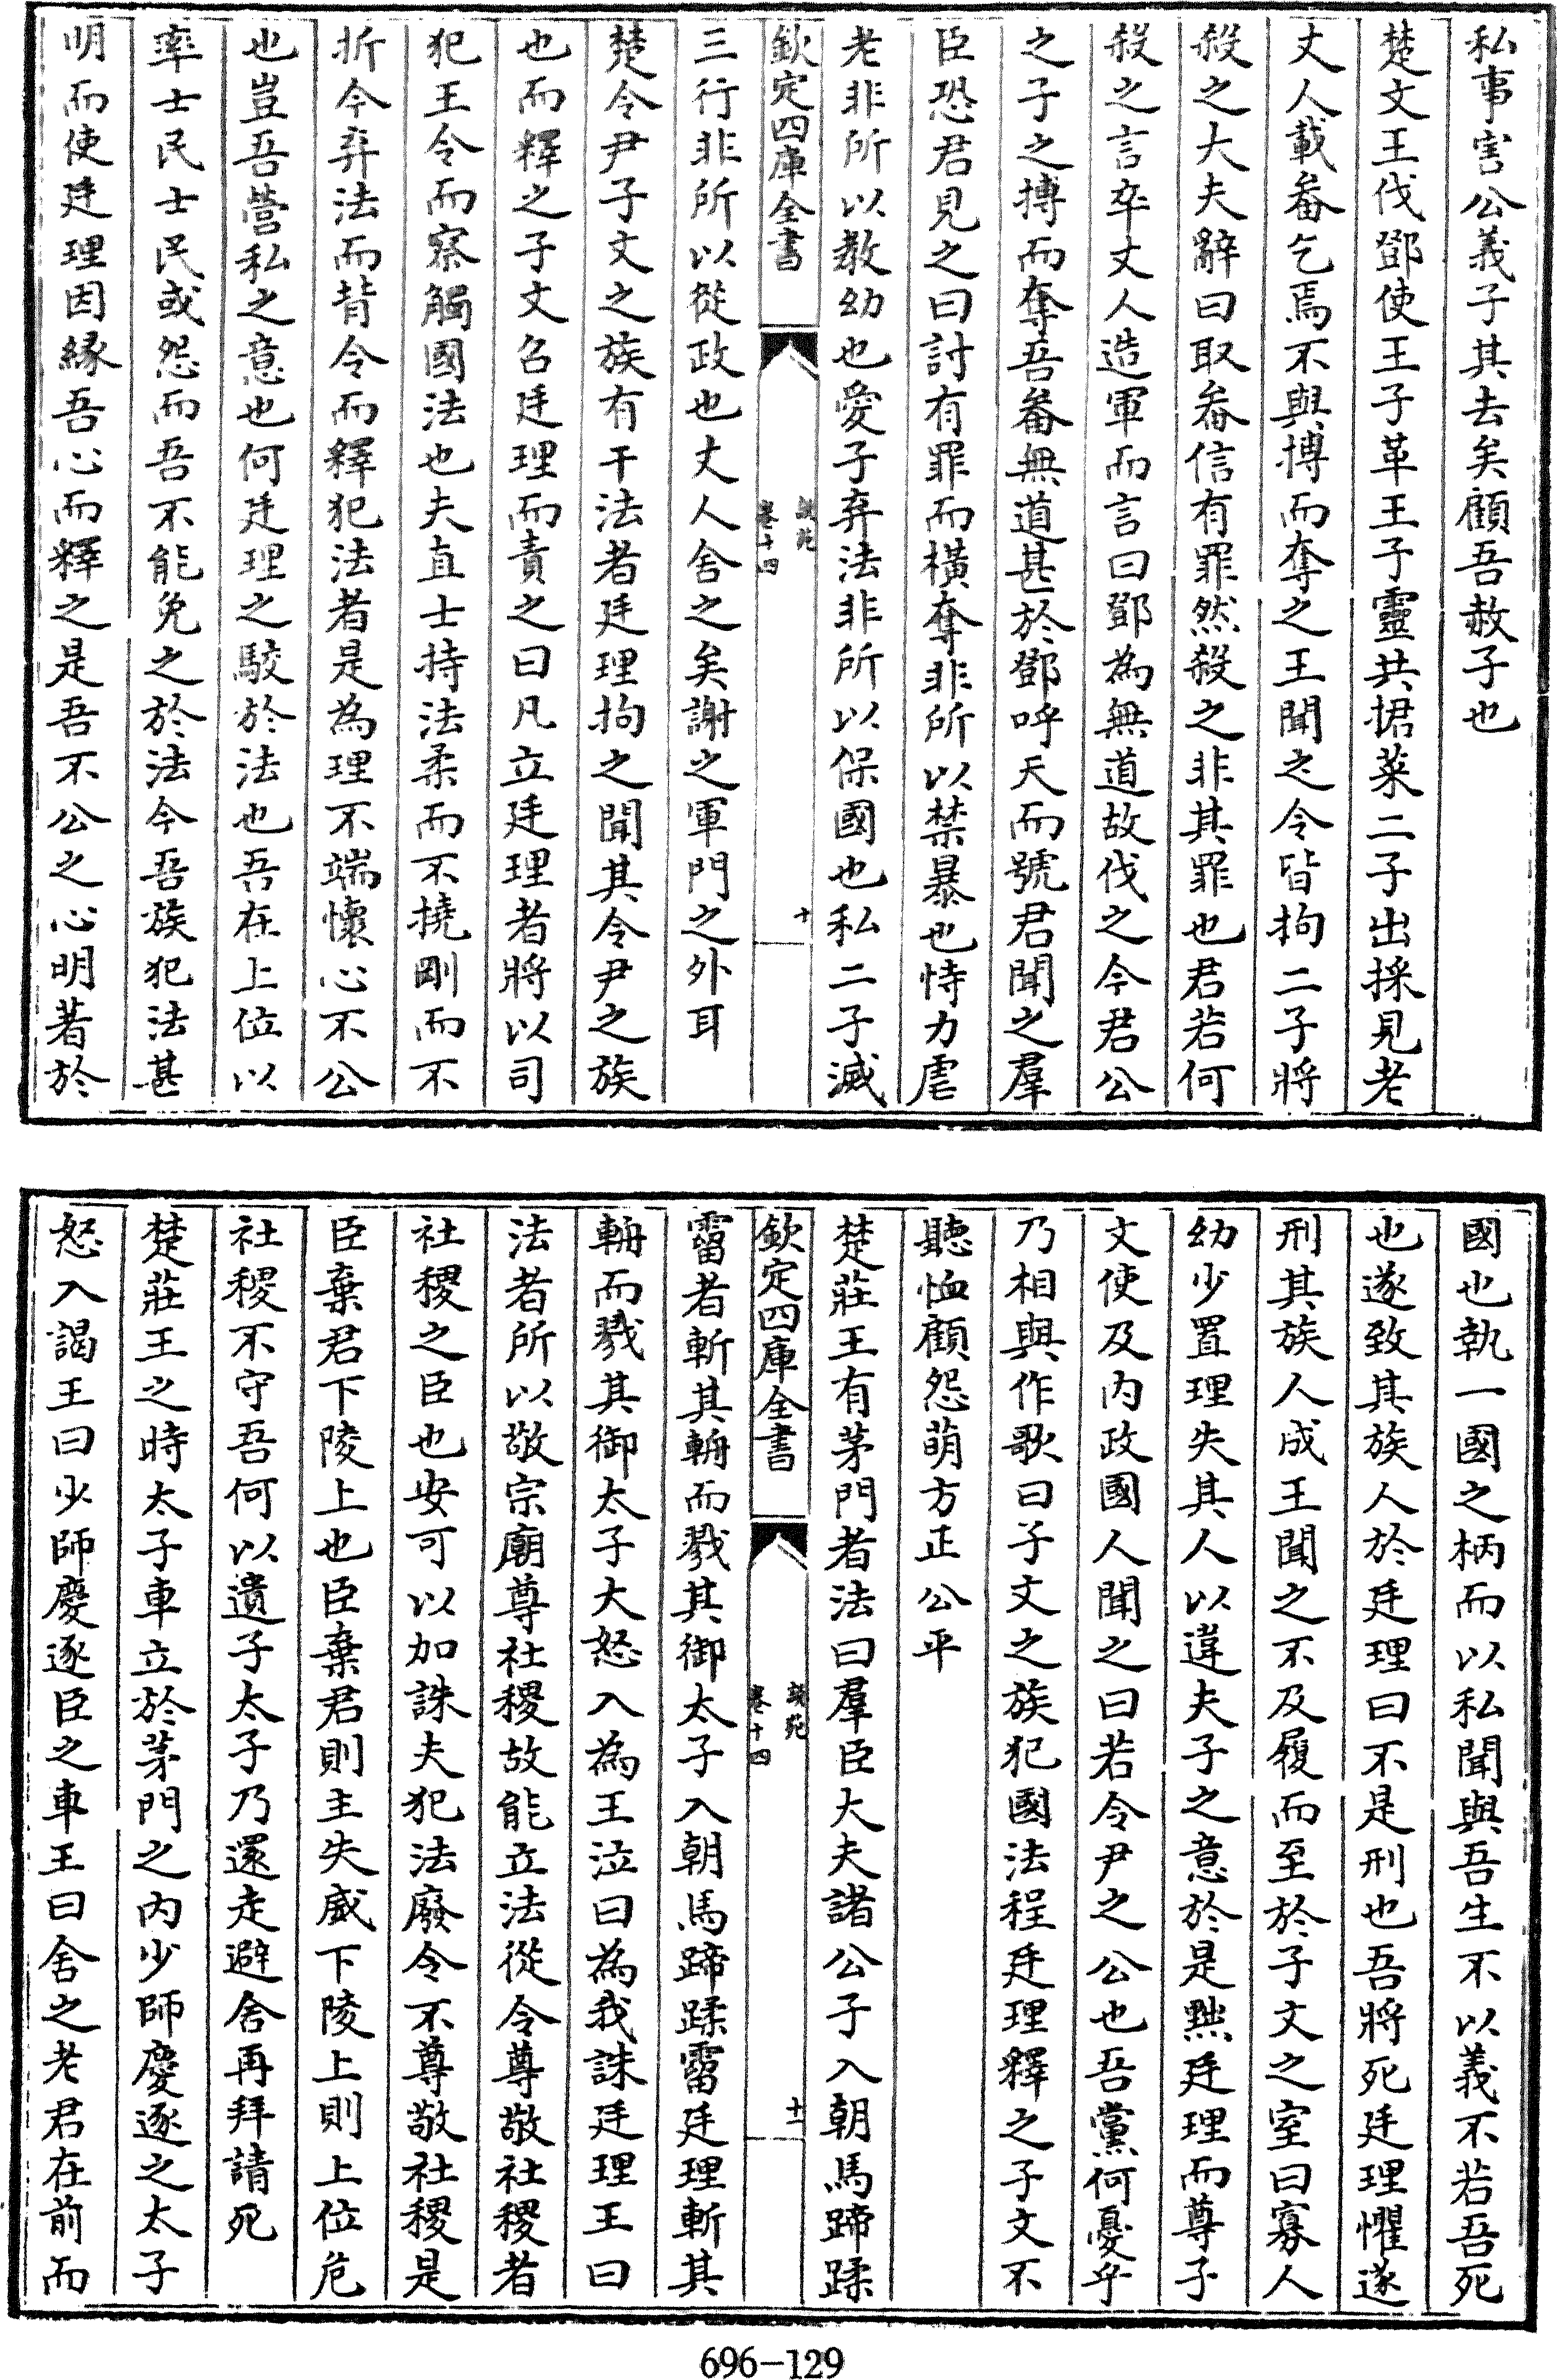 私事害公義子其去矣顧吾赦子也
楚文王伐鄧使王子革王子靈共捃菜二子出採見老
丈人載畚乞焉不與搏而奪之王聞之令皆拘二子將
殺之大夫辭曰取畚信有罪然殺之非其罪也君若何
殺之言卒丈人造軍而言曰鄧為無道故伐之今君公
之子之搏而奪吾畚無道甚於鄧呼天而號君聞之羣
臣恐君見之曰討有罪而橫奪非所以禁暴也恃力虐
老非所以教幼也愛子弃法非所以保國也私二子滅
欽定四庫全書
說苑
卷十四
十
三行非所以從政也丈人舍之矣謝之軍門之外耳
楚令尹子文之族有干法者廷理拘之聞其令尹之族
也而釋之子文召廷理而責之曰凡立廷理者將以司
犯王令而察觸國法也夫直士持法柔而不撓剛而不
折今弃法而背令而釋犯法者是為理不端懷心不公
也豈吾營私之意也何廷理之駮於法也吾在上位以
率士民士民或怨而吾不能免之於法今吾族犯法甚
明而使廷理因緣吾心而釋之是吾不公之心明著於
國也執一國之柄而以私聞與吾生不以義不若吾死
也遂致其族人於廷理曰不是刑也吾將死廷理懼遂
刑其族人成王聞之不及履而至於子文之室曰寡人
幼少置理失其人以違夫子之意於是黜廷理而尊子
文使及內政國人聞之曰若令尹之公也吾黨何憂乎
乃相與作歌曰子文之族犯國法程廷理釋之子文不
聽恤顧怨萌方正公平
楚莊王有茅門者法曰羣臣大夫諸公子入朝馬蹄蹂
欽定四庫全書
說苑
卷十四
十一
霤者斬其輈而戮其御太子入朝馬蹄蹂霤廷理斬其
輈而戮其御太子大怒入為王泣曰為我誅廷理王曰
法者所以敬宗廟尊社稷故能立法從令尊敬社稷者
社稷之臣也安可以加誅夫犯法廢令不尊敬社稷是
臣棄君下陵上也臣棄君則主失威下陵上則上位危
社稷不守吾何以遺子太子乃還走避舍再拜請死
楚莊王之時太子車立於茅門之內少師慶逐之太子
怒入謁王曰少師慶逐臣之車王曰舍之老君在前而
696-129